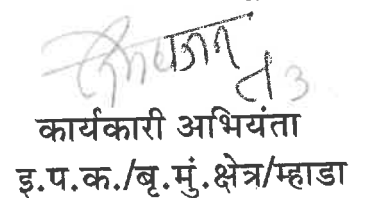 कार्यकारी अभियंता
इ.प.क./बृ.मुं.क्षेत्र/म्हाडा